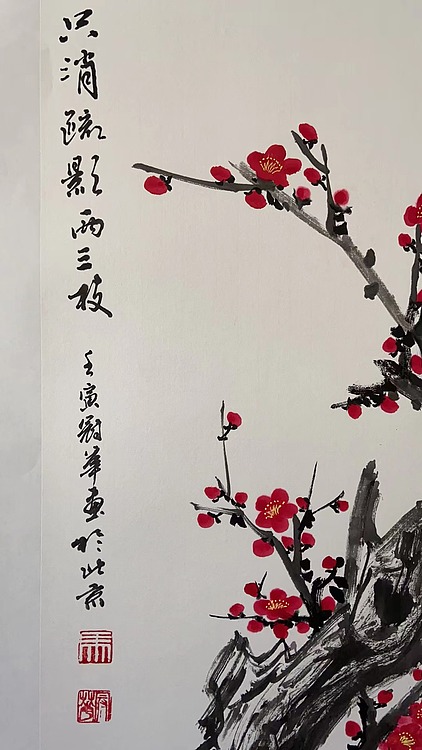 只消疏影两三枝
壬寅冠华画于北京